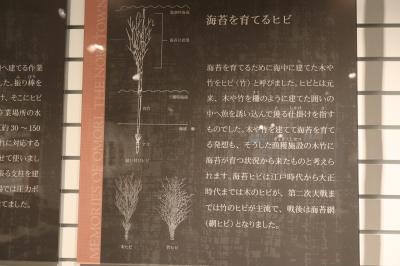 海苔を育てるヒビ
海苔を育てるために海中に建てた木や
竹をヒビ（竹）と呼びました。ヒビとは元
来、木や竹を柵のように建てた囲いの
中へ魚を誘い込んで獲る仕掛けを指す
ものでした。木や竹を建てて海苔を育て
る発想も、そうした漁撈施設の木竹に
海苔が育つ状況から来たものと考えら
れます。海苔ヒビは江戸時代から大正
時代までは木のヒビが、第二次大戦ま
では竹のヒビが主流で、戦後は海苔網
（網ヒビ）となりました。
MEMORIES OF OMORI
TOWN
へ建てる作業
した。振り棒を
け、そこにヒビ
業場所の水
約30～150
れに対応する
せて使いまし
張る支柱を建
では圧力ポ
てました。
木ヒビ
竹ヒビ